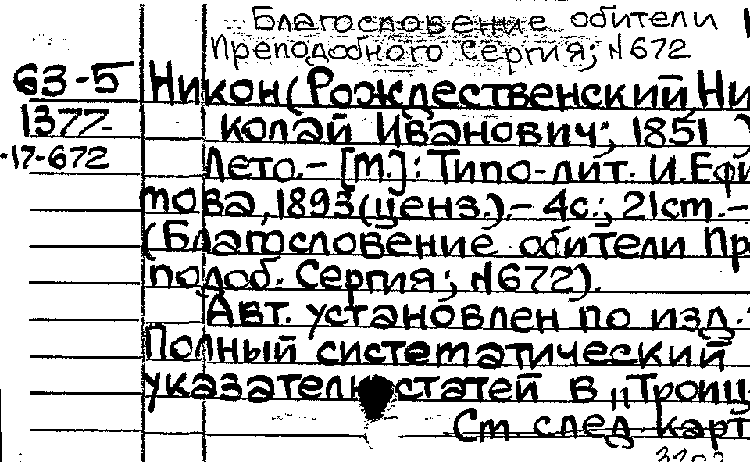 Благословение обители
Преподобного Сергия; N672
63-5 Никон (Рождественский Ни
1377 колай Иванович; 1851
-17-672 Лето. - [М.]: Типо-лит. И.Ефи
мова, 1893 (ценз.). - 4с.; 21см. -
(Благословение обители Пр
подоб. Сергия; N672).
Авт. установлен по изд.
Полный систематический
указатель статей в „Троиц
См. след. карт